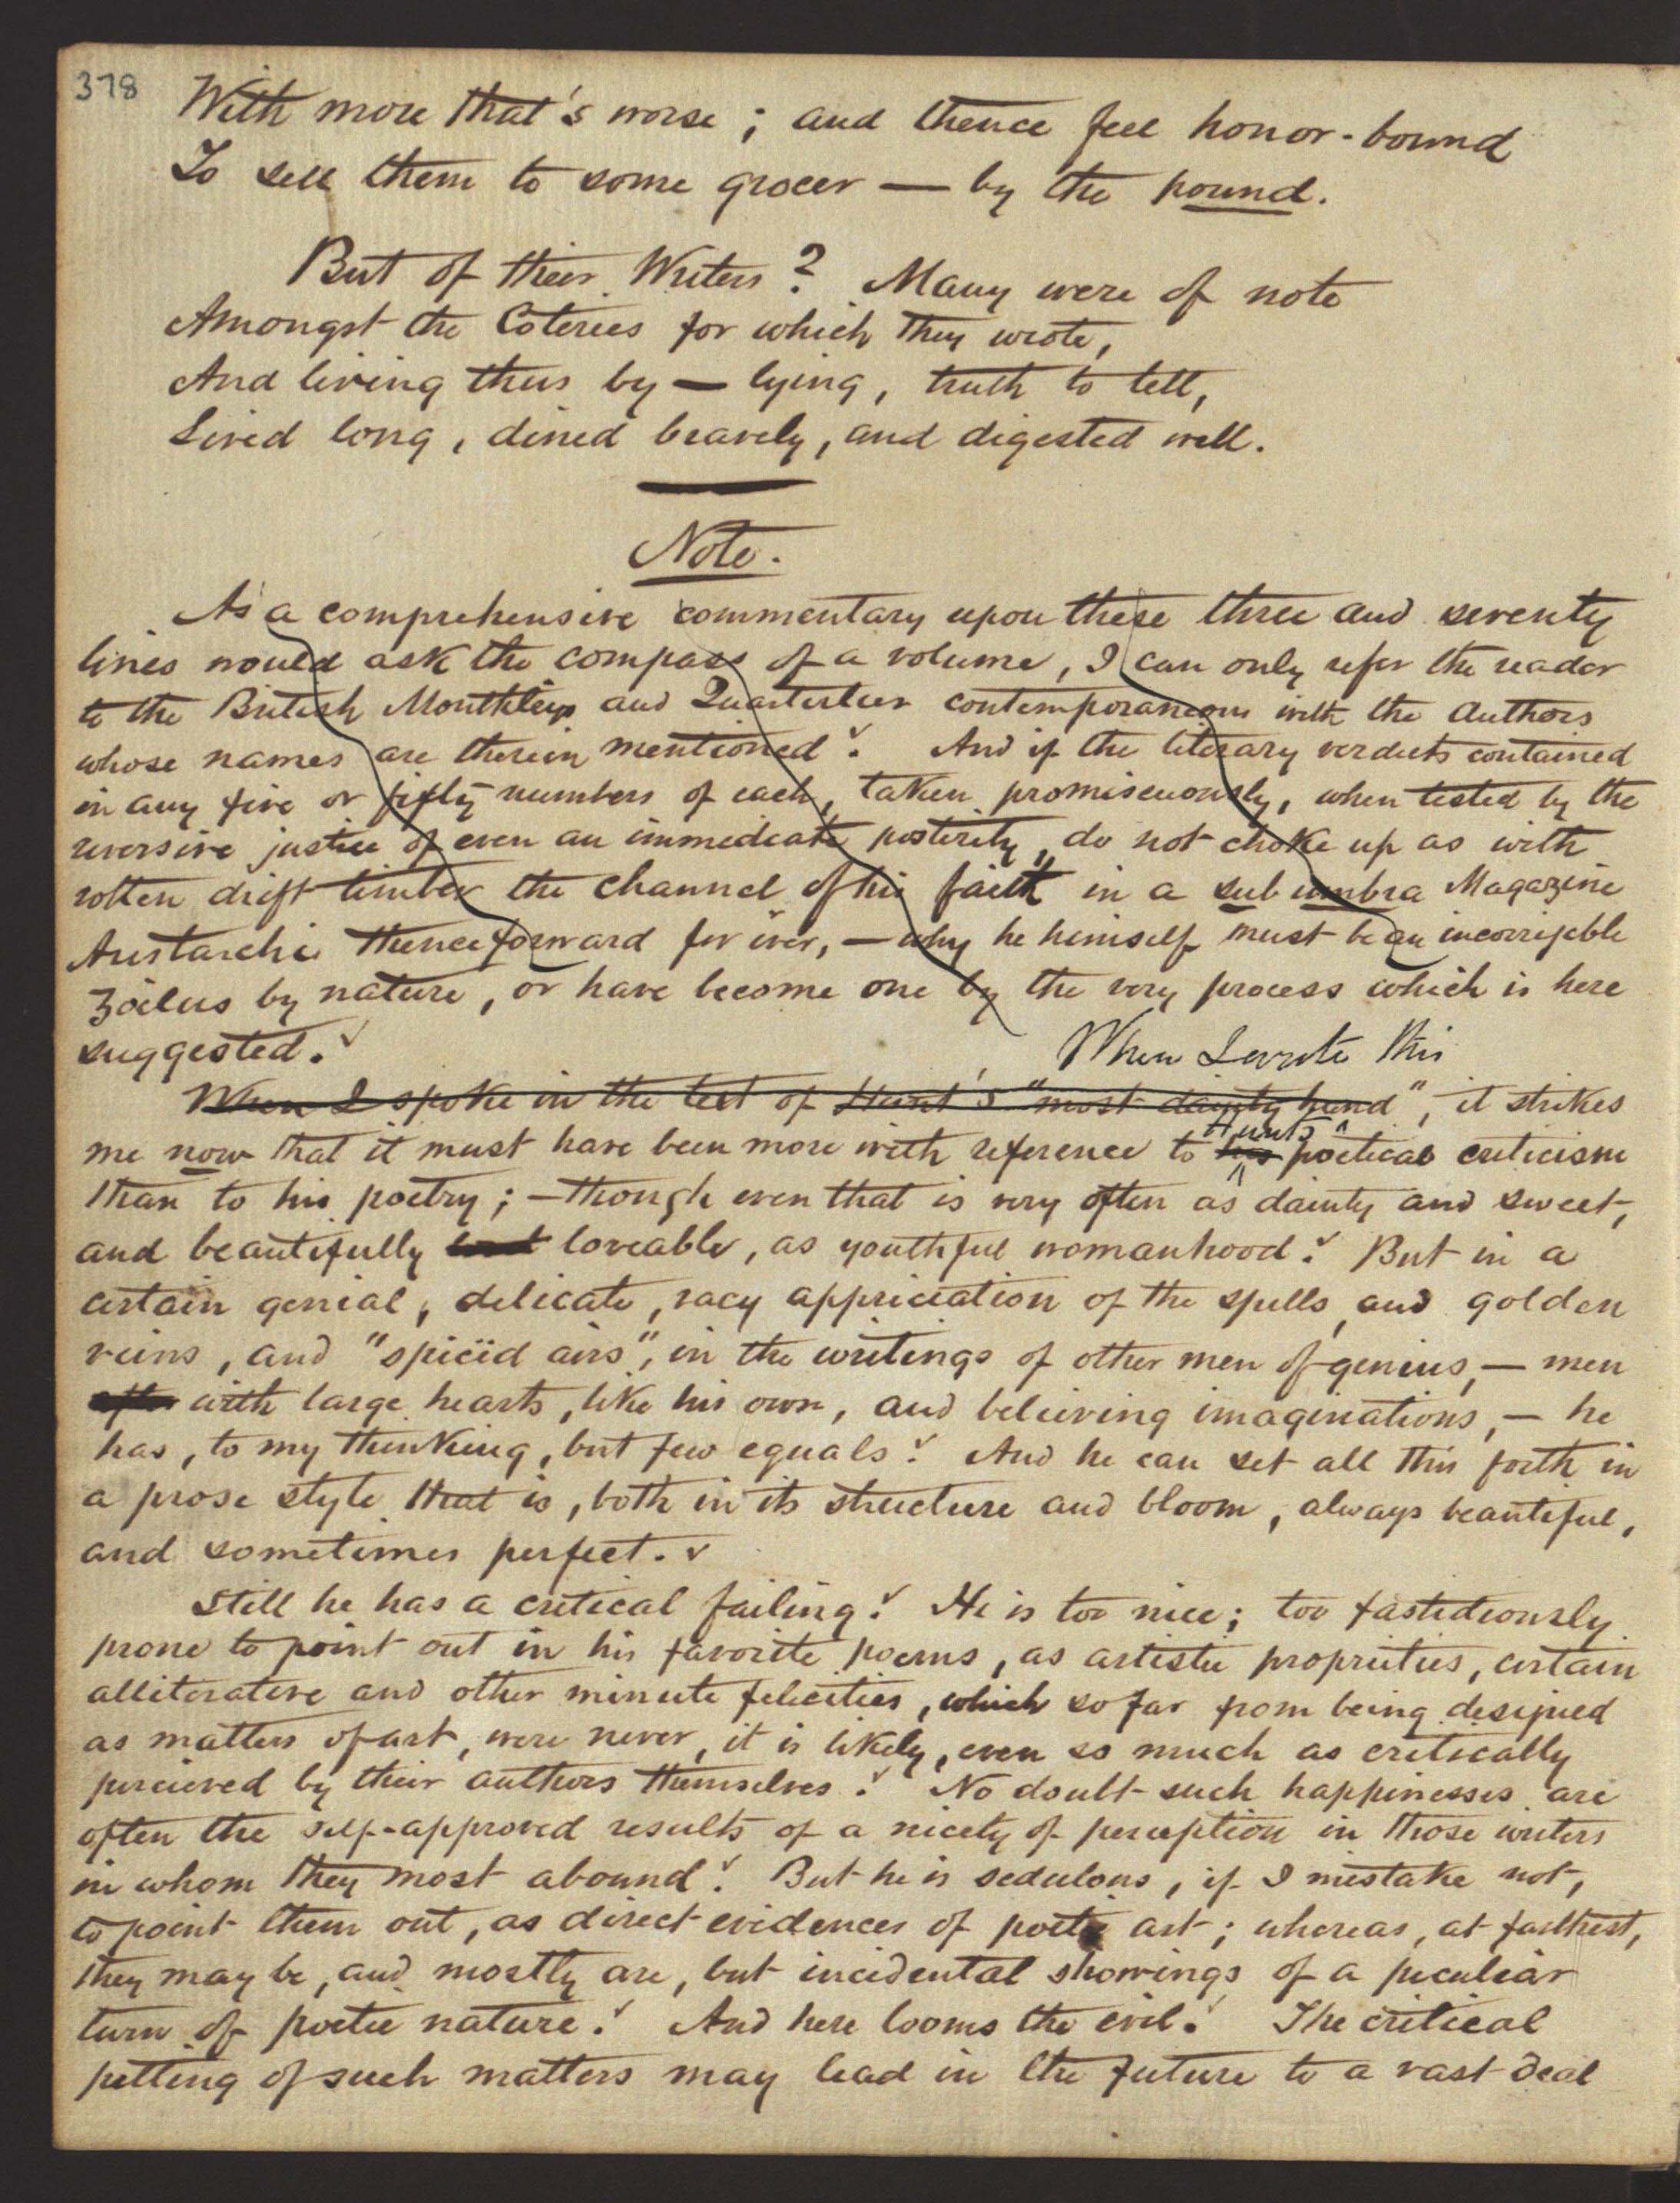 378
With more that's worse; and thence feel honor-bound
To sell them to some grocer — by the pound.
But of their Writers? Many were of note
Amongst the Coteries for which they wrote,
And living thus by — lying, truth to tell,
Lived long, dined bravely, and digested well.
Note.
As a comprehensive commentary upon these three and seventy
lines would ask the compass of a volume, I can only refer the reader
to the British Monthleys and Quarterlies contemporaneous with the Authors
whose names are therein mentioned. And if the literary verdicts contained
in any five or fifty numbers of each, taken promiscuously, when tested by the
reversive justice of even an immediate posterity, do not choke up as with
rotten drift timber the channel of his faith in a sub umbra Magazine
Aristarchi thenceforward for ever, — why he himself must be an incorrigible
Zöilus by nature, or have become one by the very process which is here
suggested.
When I wrote this
When I spoke in the text of Hunt's "most dainty hand", it strikes
me now that it must have been more with reference to his Hunt's poetical criticism
than to his poetry; — though even that is very often as dainty and sweet,
and beautifully loveable, as youthful womanhood. But in a
certain genial, delicate, racy appriciation of the spells, and golden
veins, and "spicïed airs", in the writings of other men of genius, — men
with large hearts, like his own, and believing imaginations, — he
has, to my thinking, but few equals. And he can set all this forth in
a prose style that is, both in its structure and bloom, always beautiful,
and sometimes perfect.
Still he has a critical failing. He is too nice; too fastidiously
prone to point out in his favorite poems, as artistic proprieties, certain
alliterative and other minute felicities, which so far from being designed
as matters of art, were never, it is likely, even so much as critically
percieved by their authors themselves. No doubt such happinesses are
often the self-approved results of a nicety of perception in those writers
in whom they most abound. But he is sedulous, if I mistake not,
to point them out, as direct evidences of poetic art; whereas, at farthest,
they may be, and mostly are, but incidental showings of a peculiar
turn of poetic nature. And here looms the evil. The critical
petting of such matters may lead in the future to a vast deal